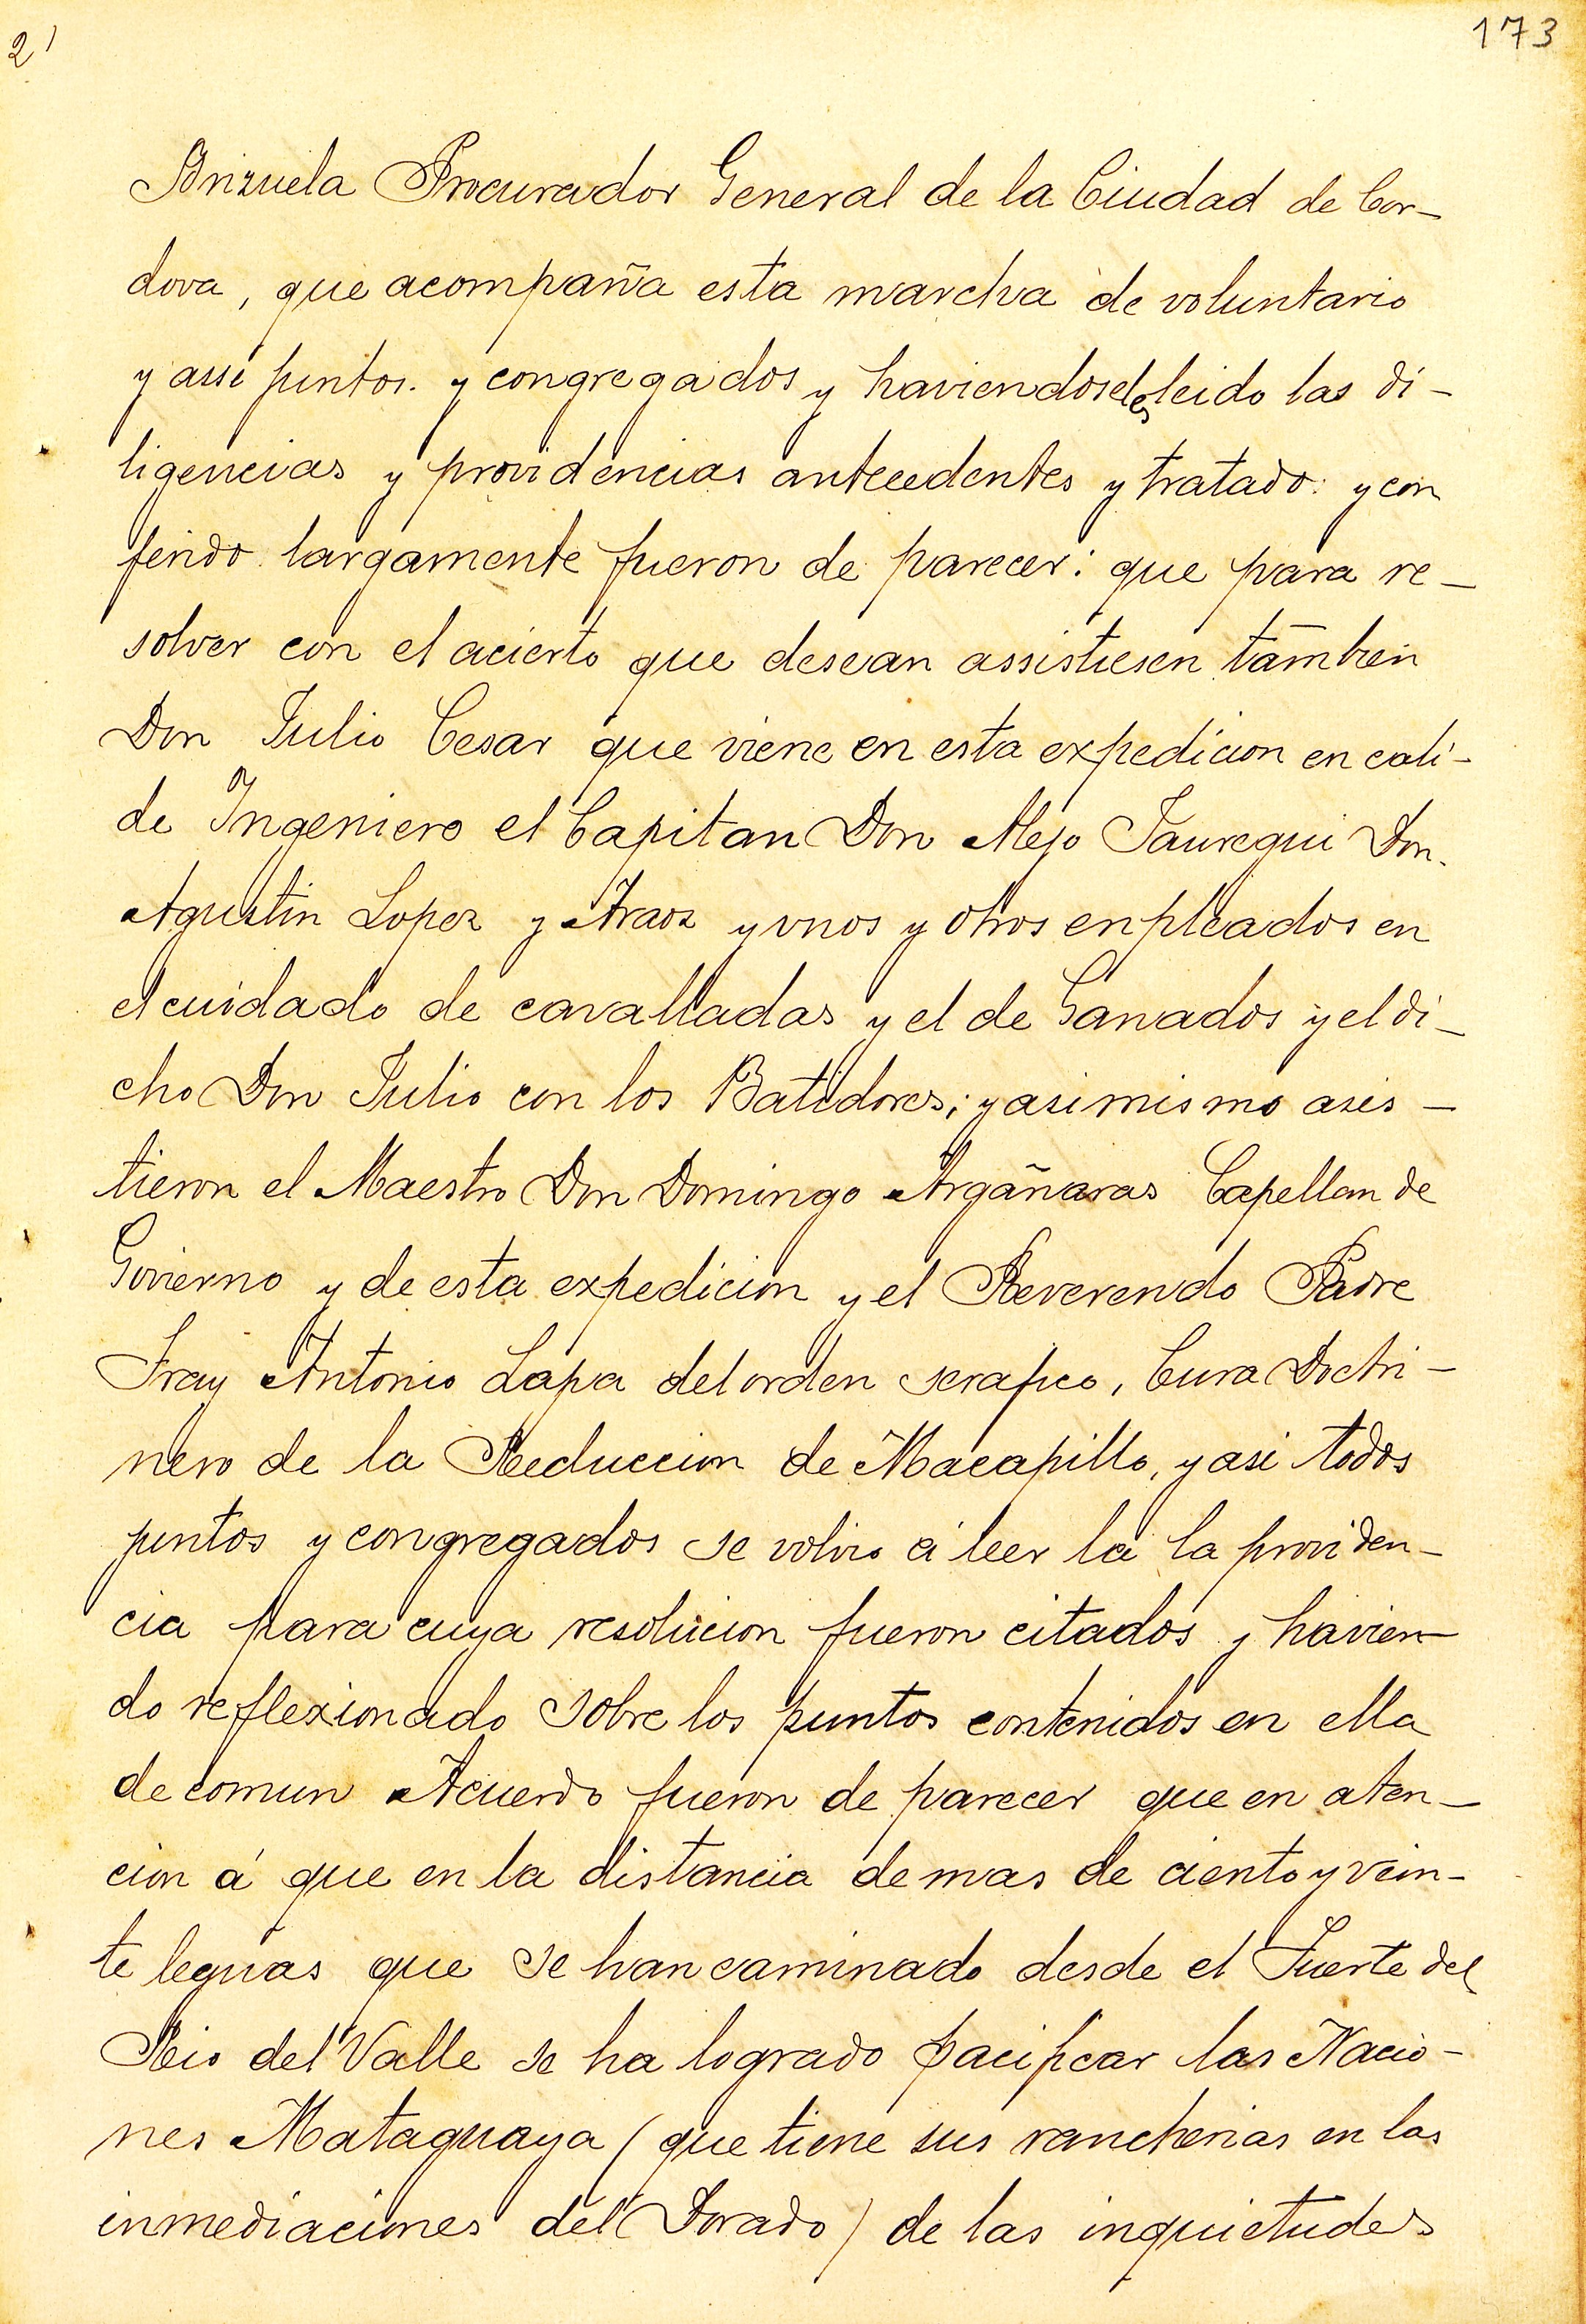 2'
173
Brizuela Procurador General de la Ciudad de Cor-
dova, que acompaña esta marcha de voluntario
y assi juntos. y congregados y haviendoseles leido las di-
ligencias y providencias antecedentes y tratado: y con
ferido largamente fueron de parecer: que para re-
solver con el acierto que desean assistiesen tambien
Don Julio Cesar que viene en esta expedicion en cali-
de Ingeniero el Capitan Don Alejo Jauregui Don.
Agustin Lopez y Araoz y vnos y otros enpleados en
el cuidado de cavalladas y el de Ganados y el di-
cho Don Julio con los Batidores; y asi mismo asis-
tieron el Maestro Don Domingo Argañaras Capellan de
Govierno y de esta expedicion y el Reverendo Padre
Fray Antonio Lapa del orden serafico, Cura Doctri-
nero de la Reduccion de Macapillo, y asi todos
juntos y congregados se volvio á leer la la providen-
cia para cuya resolucion fueron citados y havien-
do reflexionado sobre los puntos contenidos en ella
de comun Acuerdo fueron de parecer que en aten-
cion á que en la distancia de mas de ciento y vein-
te leguas que se han caminado desde el Fuerte del
Rio del Valle se ha logrado pacificar las Nacio-
nes Mataguaya (que tiene sus rancherias en las
inmediaciones del Dorado) de las inquietudes